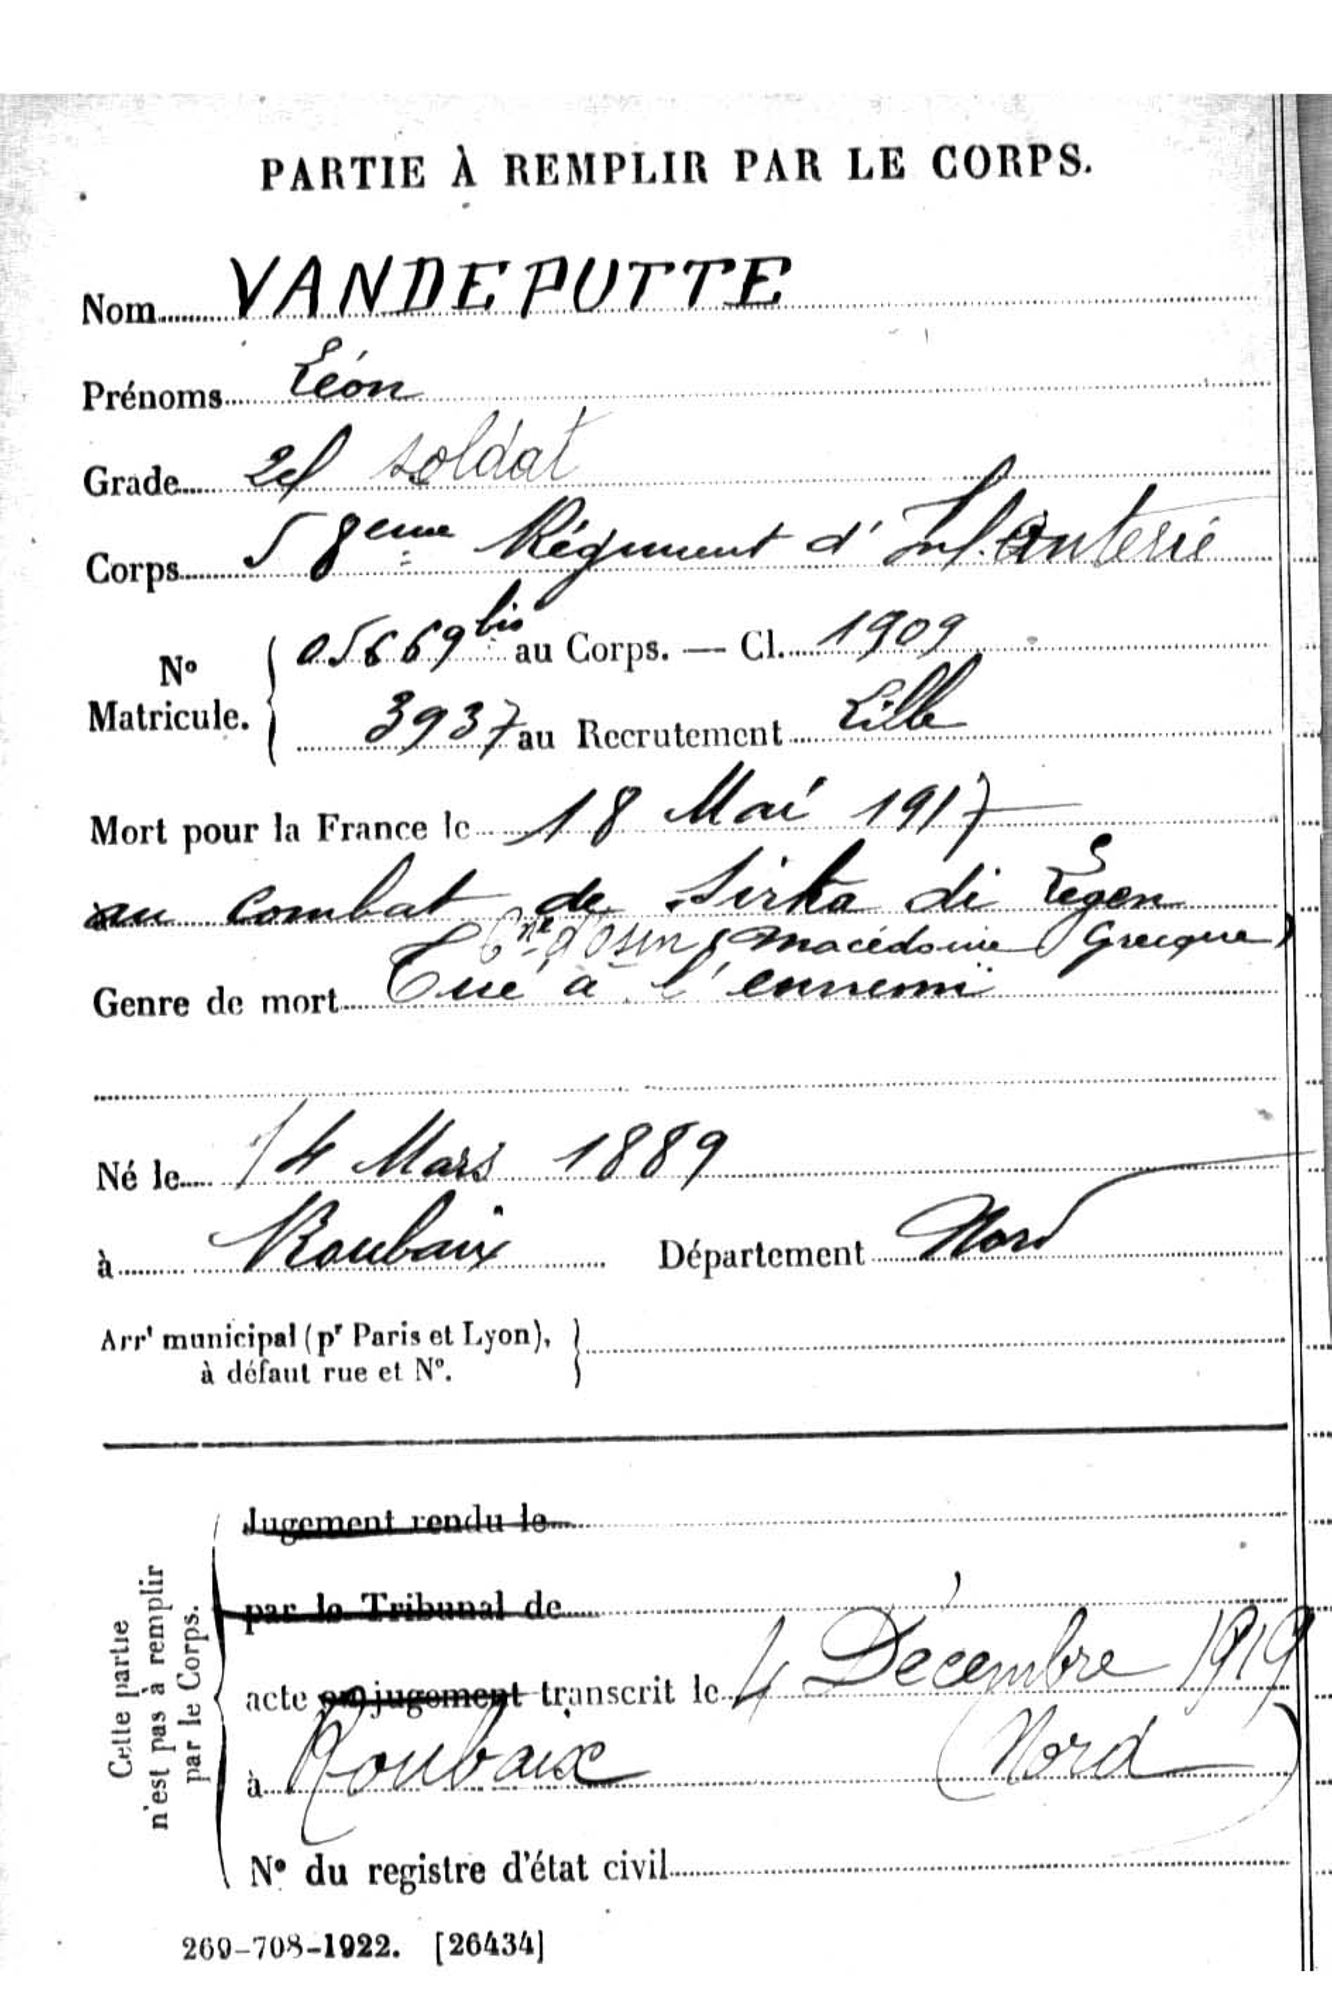 PARTIE À REMPLIR PAR LE CORPS.
Nom VANDEPUTTE
Prénoms Léon
Grade soldat
Corps 58eme Régiment d'Infanterie
No Matricule. 05669 bis au Corps. — Cl. 1909
3937 au Recrutement Lille
Mort pour la France le 18 Mai 1917
au combat de Sirka di Legen
(Macédoine Grecque)
Genre de mort Tué à l'ennemi
Né le 14 Mars 1889
à Roubaix Département Nord
Arrt municipal (pr Paris et Lyon),
à défaut rue et No.
Jugement rendu le
par le Tribunal de
acte ou jugement transcrit le 4 Décembre 1919
à Roubaix (Nord)
No du registre d'état civil
Cette partie
n'est pas à remplir
par le Corps.
269-708-1922. [26434]